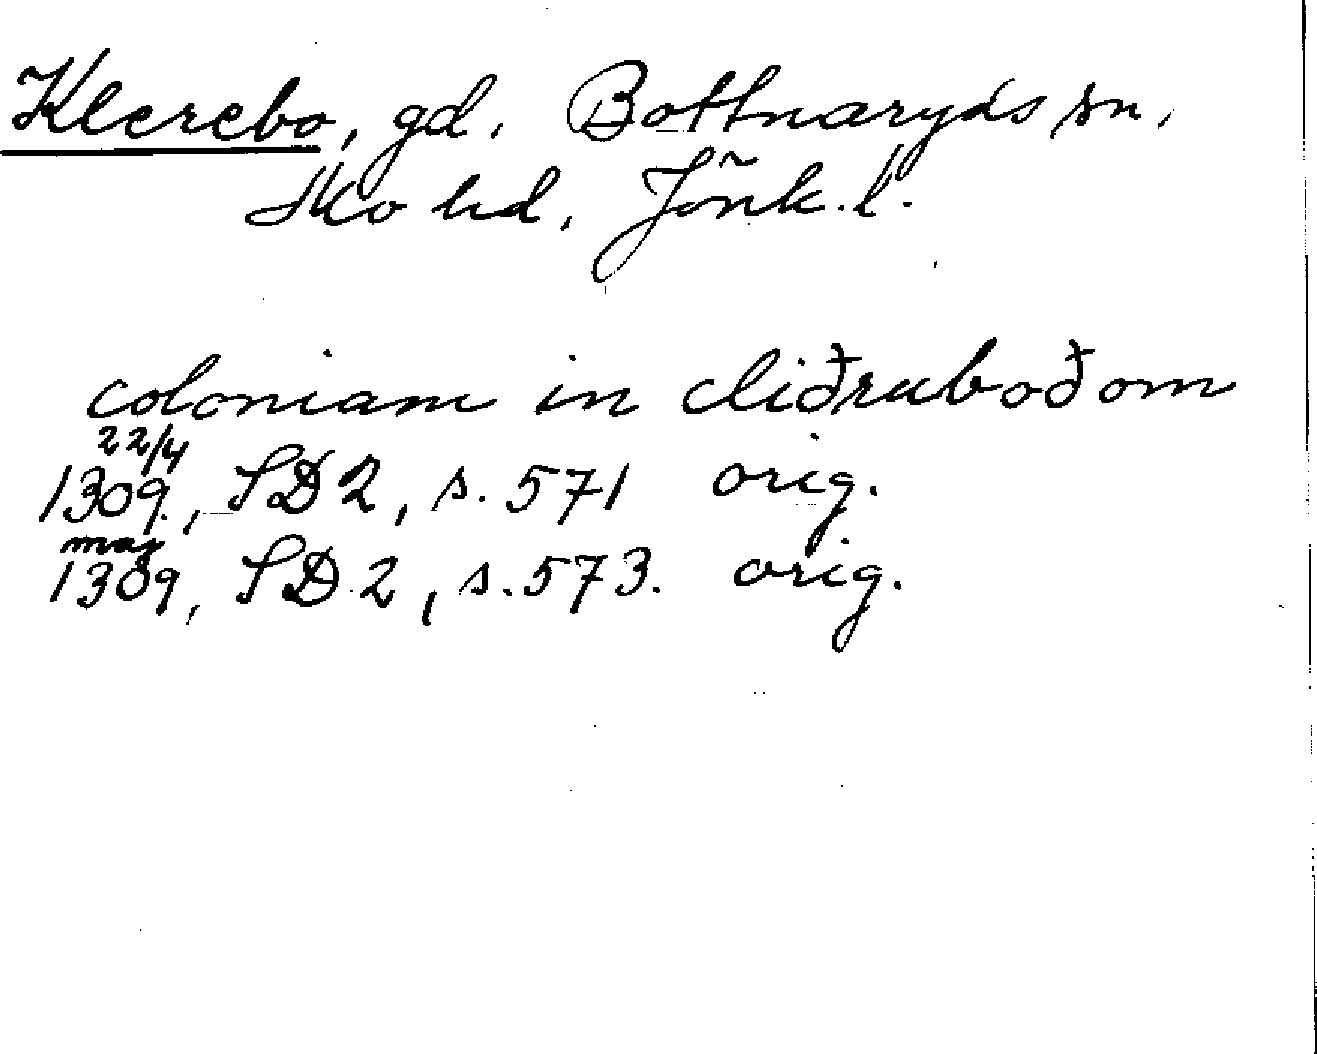 Klerebo, gd. Bottnaryds sn,
Mo hd, Jönk. l.
coloniam in cliðruboðom
22/4
1309., SD 2, s. 571 orig.
maj
1309, SD 2, s. 573. orig.